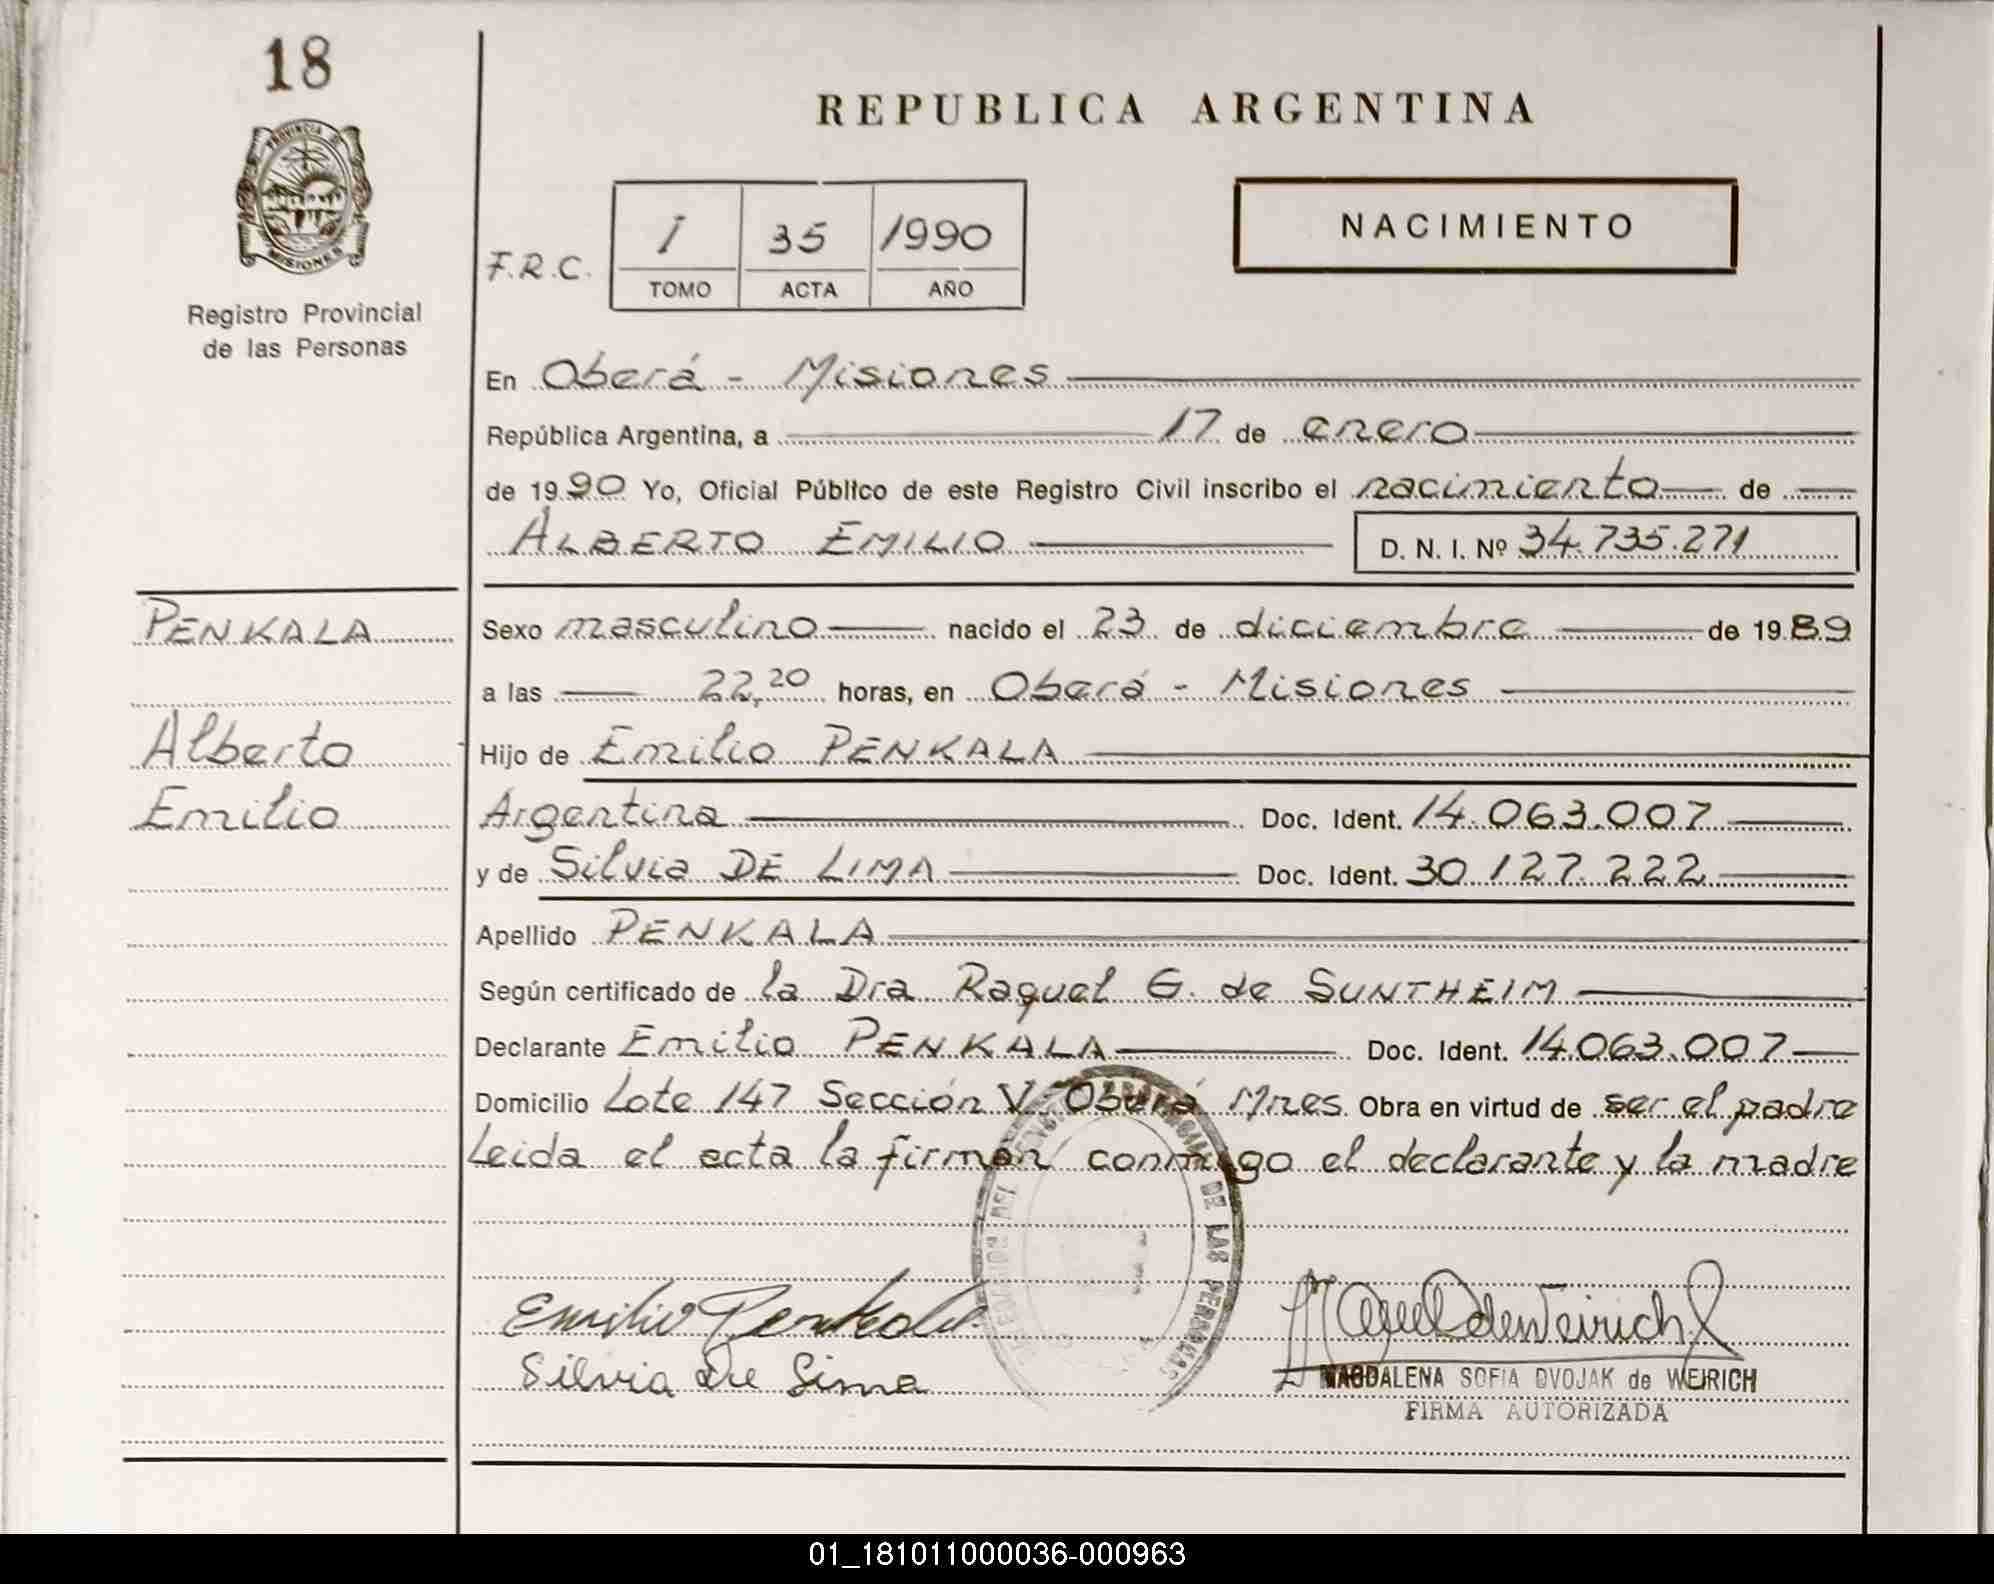 18
REPUBLICA ARGENTINA
PROVINCIA DE
MISIONES
Registro Provincial
de las Personas
F.R.C.
1 35 1990
TOMO ACTA AÑO
NACIMIENTO
En Oberá - Misiones
República Argentina, a 17 de enero
de 1990 Yo, Oficial Público de este Registro Civil inscribo el nacimiento de
ALBERTO EMILIO D. N. I. Nº 34.735.271
PENKALA
Alberto
Emilio
Sexo masculino nacido el 23 de diciembre de 1989
a las 22,20 horas, en Oberá - Misiones
Hijo de Emilio PENKALA
Argentina Doc. Ident. 14.063.007
y de Silvia DE LIMA Doc. Ident. 30.127.222
Apellido PENKALA
Según certificado de la Dra Raquel G. de SUNTHEIM
Declarante Emilio PENKALA Doc. Ident. 14.063.007
Domicilio Lote 147 Sección V Oberá Mnes. Obra en virtud de ser el padre
Leida el acta la firman conmigo el declarante y la madre
DE LAS PERSONAS
Emilio Penkala
Silvia De Lima
MAGDALENA SOFIA DVOJAK de WEIRICH
FIRMA AUTORIZADA
01_181011000036-000963